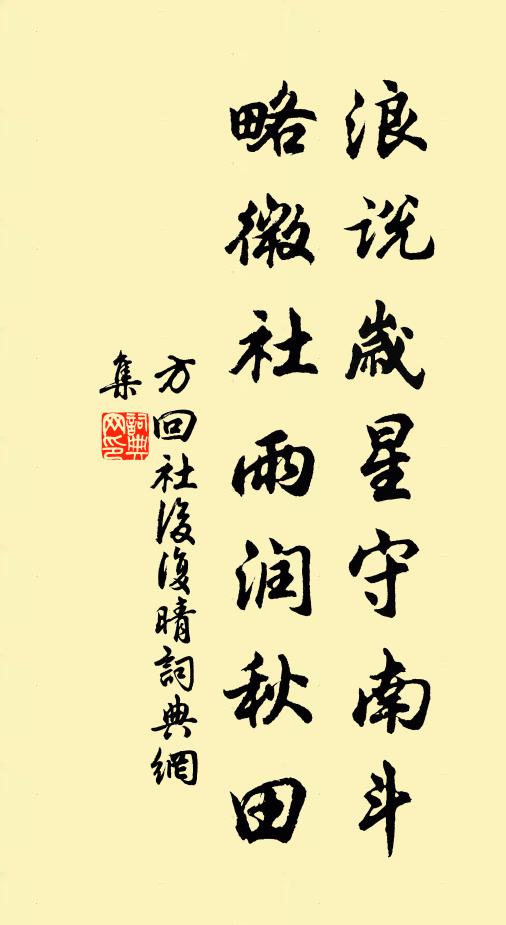 浪说岁星守南斗
略微社雨润秋田
方回社後復晴詞典網
集
詞典网印